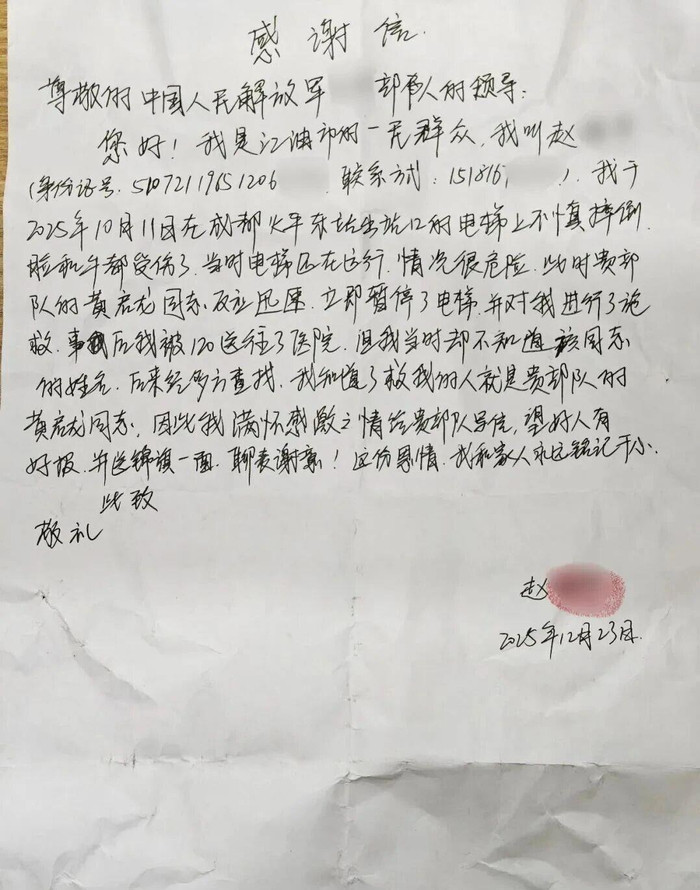 感谢信.
尊敬的中国人民解放军 部队的领导:
您好!我是江油市的一民群众,我叫赵
(身份证号.51072119651206 联系方式:151816, ).我于
2025年10月11日在成都火车东站出站口的电梯上不慎摔倒.
脸和手都受伤了.当时电梯还在运行.情况很危险.此时贵部
队的黄君龙同志反应迅速.立即暂停了电梯.并对我进行了施
救.事后我被120送往了医院.但我当时却不知道该同志
的姓名.后来经多方查找.我知道了救我的人就是贵部队的
黄君龙同志.因此我满怀感激之情给贵部队写信,望好人有
好报.并送锦旗一面.聊表谢意!这份恩情.我和家人永远铭记于心.
此致
敬礼
赵
2025年12月23日.